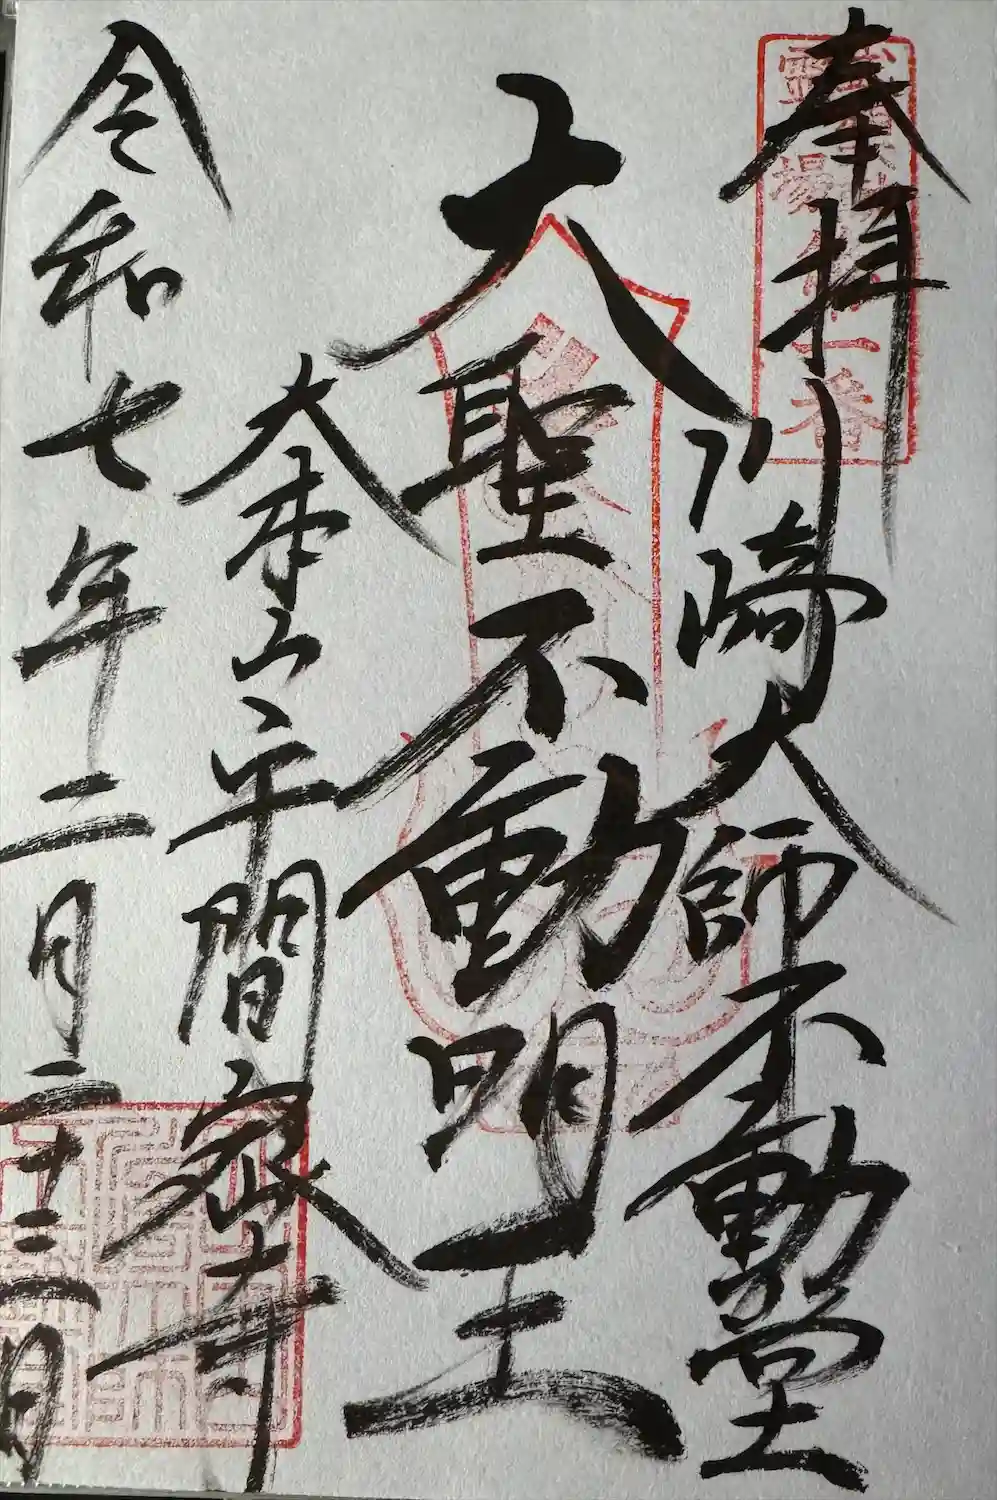 奉拝
川崎大師不動堂
大聖不動明王
大本山平間寺
令和七年二月二十三日
霊場第一番